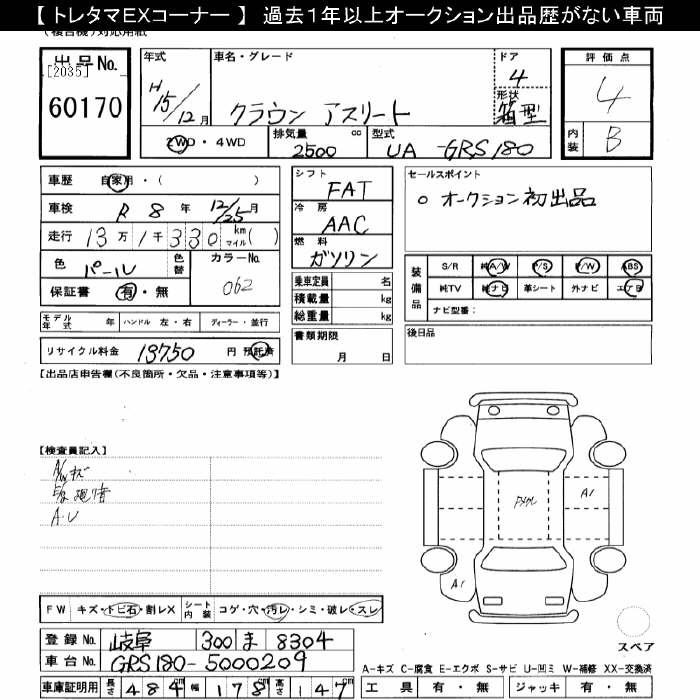 【 トレタマEXコーナー 】 過去1年以上オークション出品歴がない車両
(複合機)対応用紙
出品No.
[2035]
60170
年式
H15/12月
車名・グレード
クラウン アスリート
ドア
4
形状
箱型
2WD・4WD
排気量
2500
cc
型式
UA -GRS180
評価点
4
内装
B
車歴 自家用・( )
車検 R 8年 12/25月
走行 13万1千330 km マイル( )
色 パール 色替
カラーNo. 062
保証書 有・無
モデル年式 年 ハンドル 左・右 ディーラー・並行
リサイクル料金 13750 円 預託済
シフト
FAT
冷房
AAC
燃料
ガソリン
乗車定員 名
積載量 kg
総重量 kg
書類期限
月 日
セールスポイント
○ オークション初出品
装備品
S/R 純A/W P/S P/W ABS
純TV 純ナビ 革シート 外ナビ エアB
ナビ型番:
後日品
【出品店申告欄(不良箇所・欠品・注意事項等)】
【検査員記入】
A/Wキズ
A・U
Fメクレ
A1
A1
スペア
FW キズ・トビ石・割レX シート内装 コゲ・穴・汚レ・シミ・破レ・スレ
登録No. 岐阜 300 ま 8304
車台No. GRS180-5000209
車庫証明用 長さ 484 幅 178 高さ 147
A-キズ C-腐食 E-エクボ S-サビ U-凹ミ W-補修 XX-交換済
工具 有・無 ジャッキ 有・無